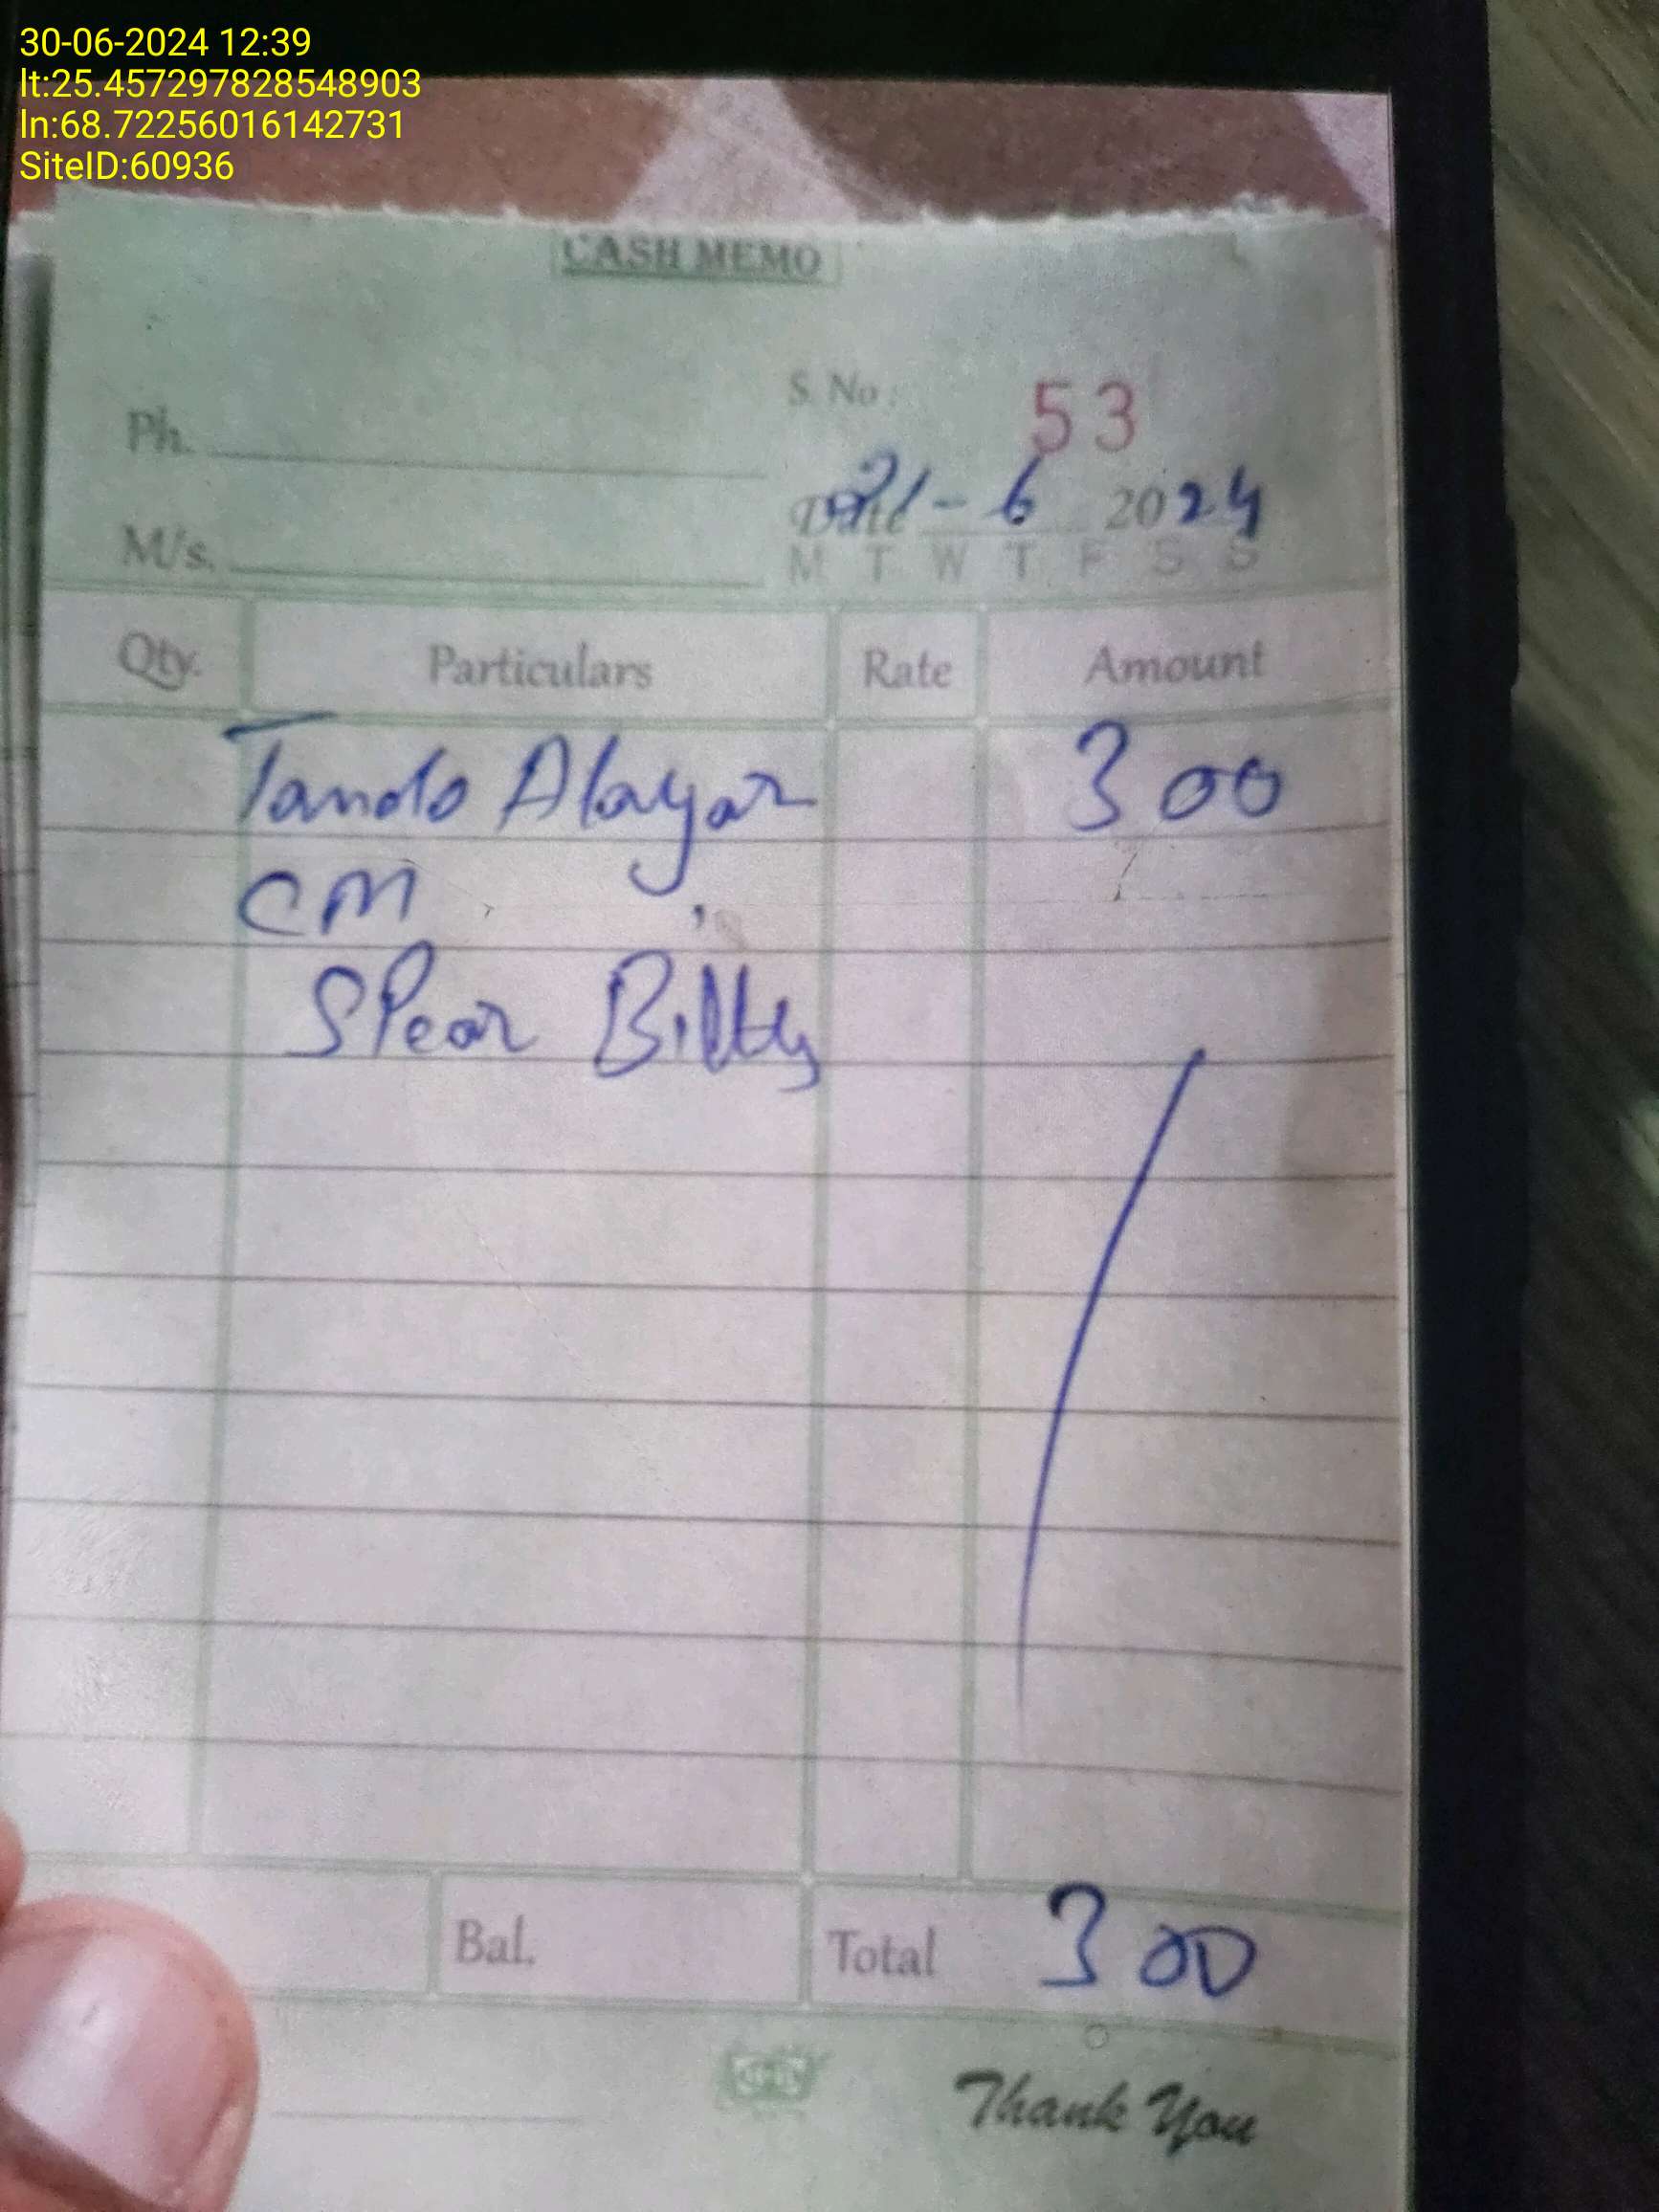 30-06-2024 12:39
lt:25.457297828548903
ln:68.72256016142731
SiteID:60936
CASH MEMO
S. No : 53
Ph.
Date 21-6 2024
M/s.
M T W T F S S
Qty. Particulars Rate Amount
Tando Alayar 300
CM
SPear Bilty
Bal. Total 300
Thank You